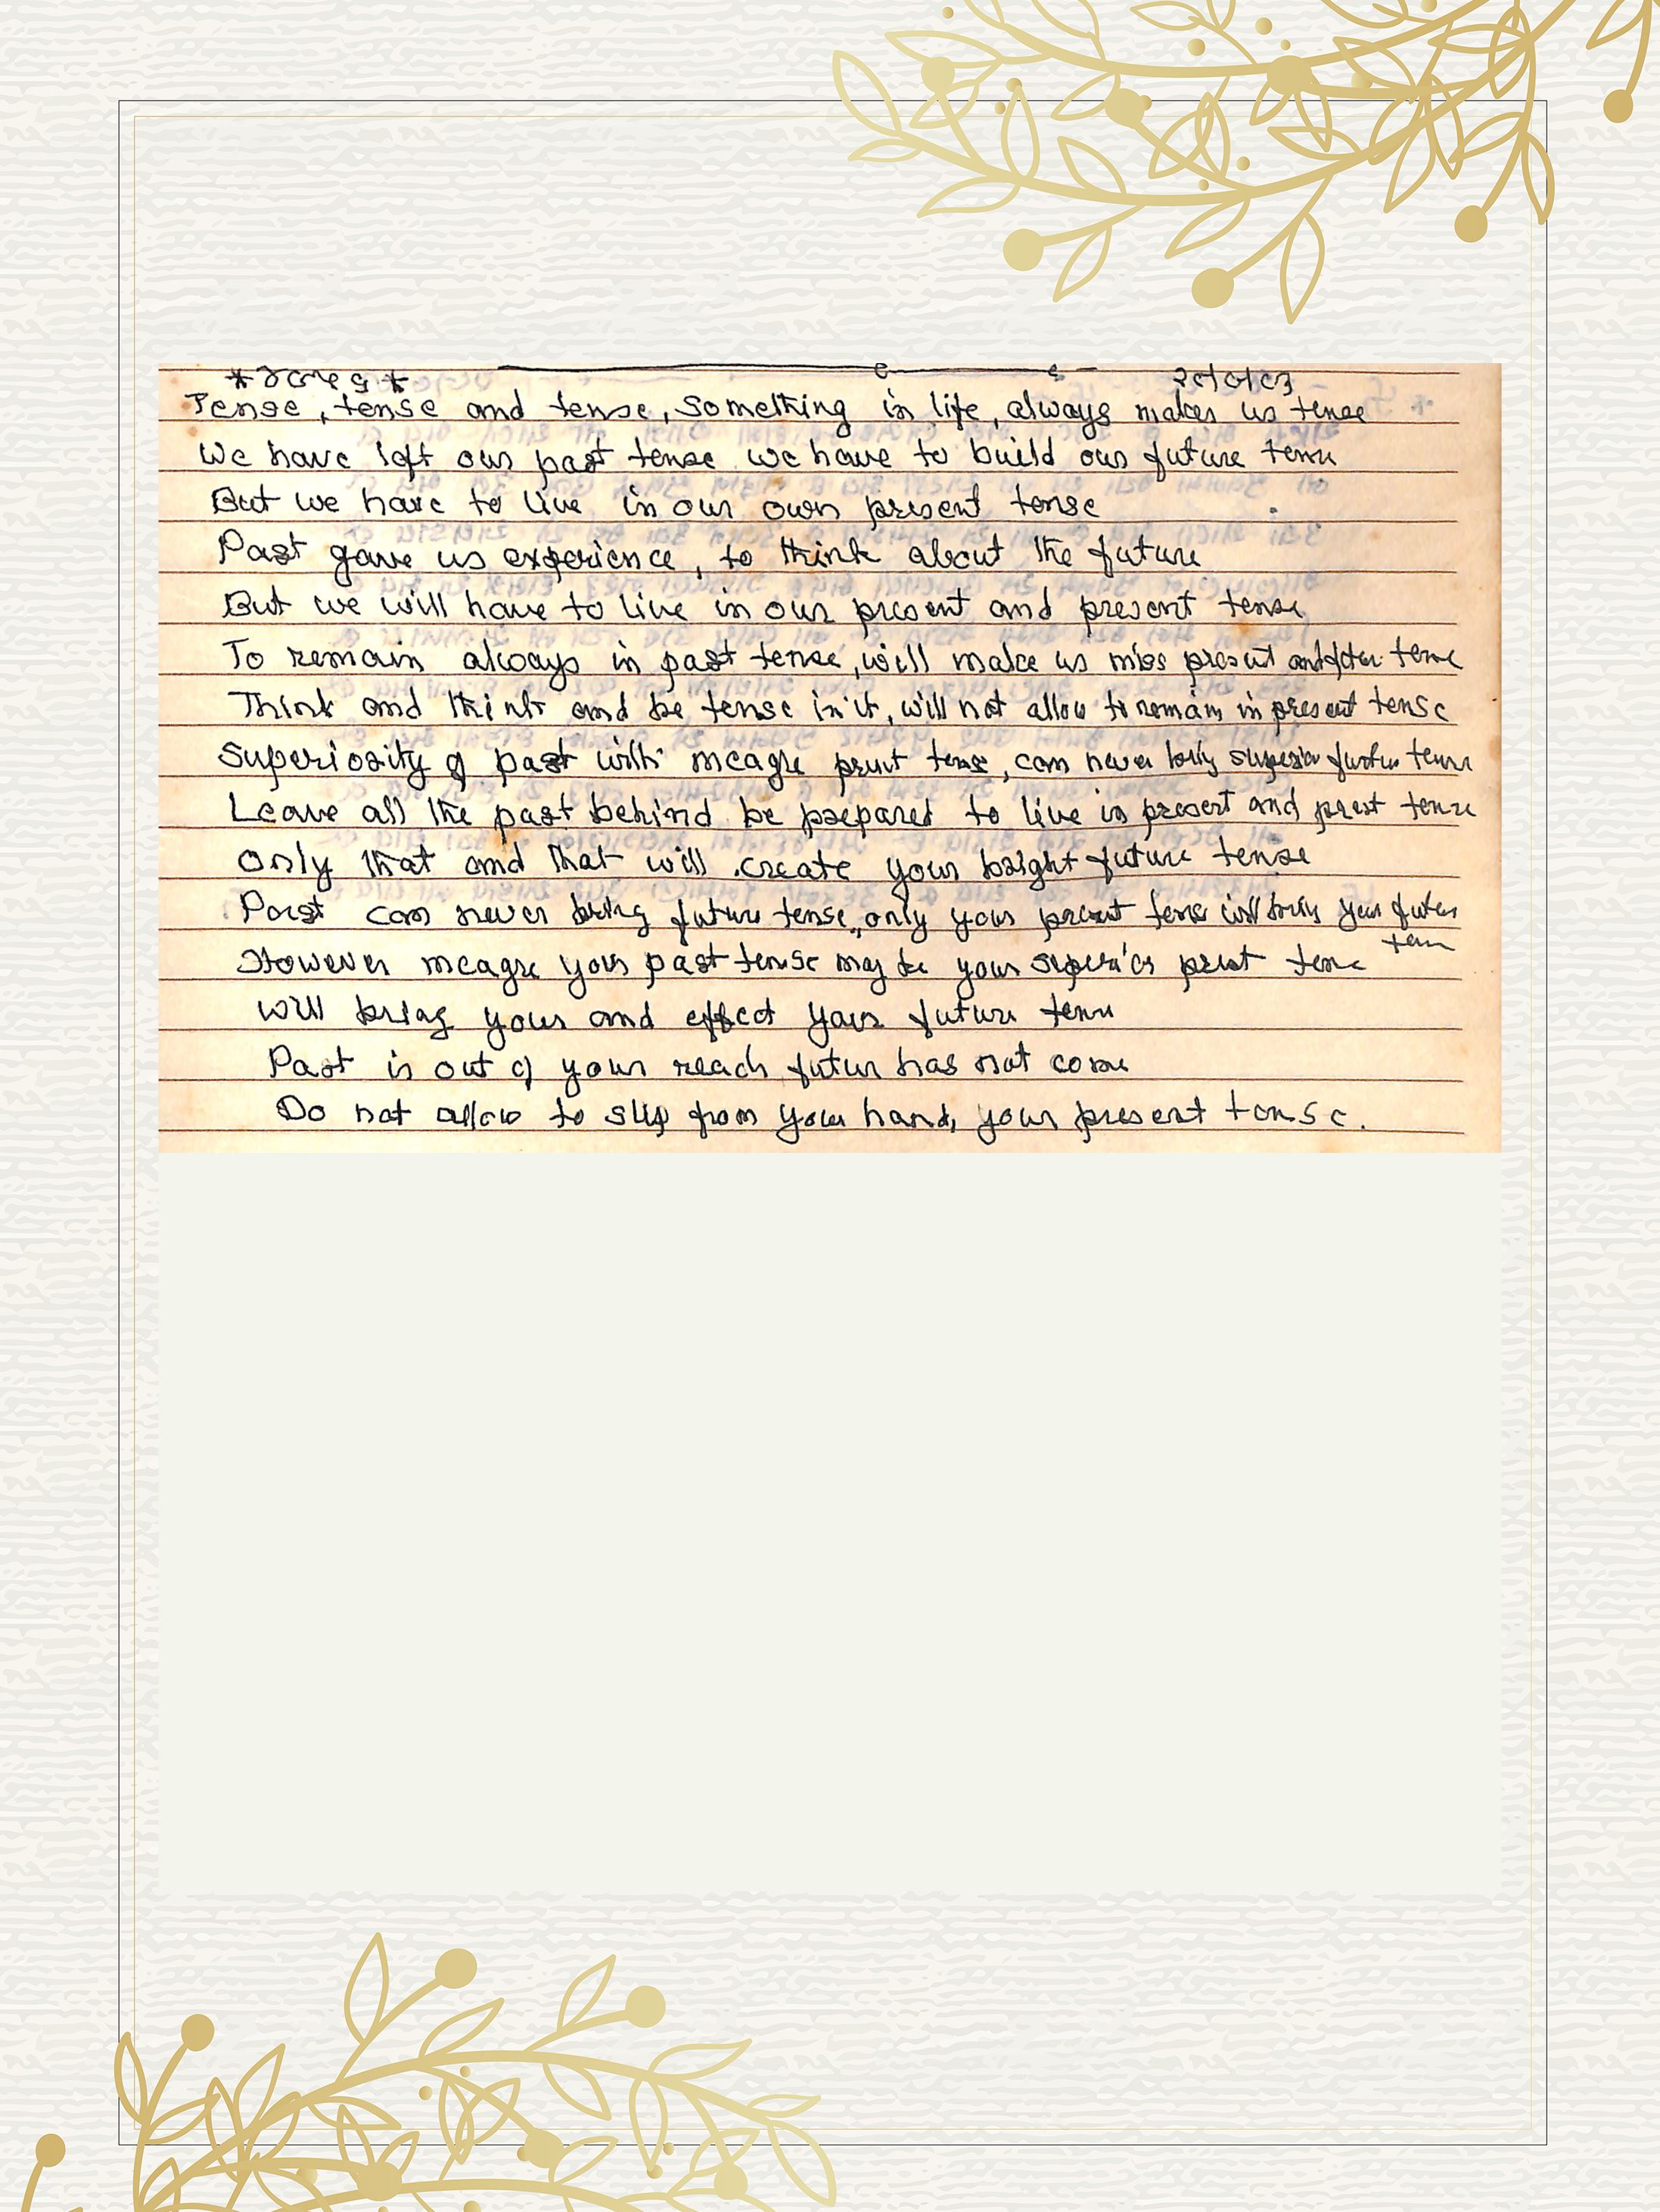 Tense, tense and tense, something in life, always makes us tense
We have left our past tense we have to build our future tense
But we have to live in our own present tense
Past gave us experience, to think about the future
But we will have to live in our present and present tense
To remain always in past tense, will make us miss present and tense
Think and think and be tense in it, will not allow to remain in present tense
Superiority of past with meagre tense, can never bring superior future tense
Leave all the past behind be prepared to live in present and present tense
Only that and that will create your bright future tense
Past can never bring future tense, only your present tense will bring your future
tense
However meagre your past tense may be your superior present tense
will bring your and effect your future tense
Past is out of your reach future has not come
Do not allow to slip from your hand, your present tense.